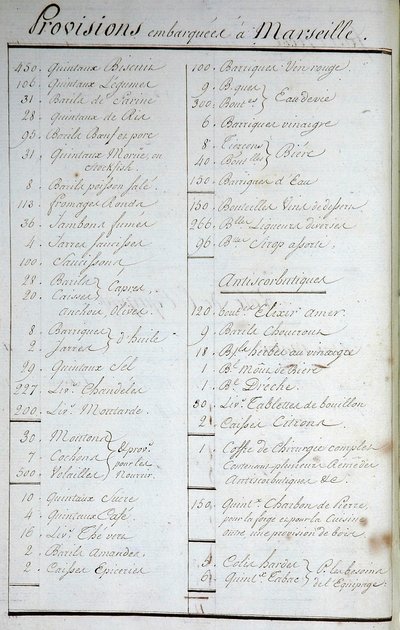 Provisions embarquées à Marseille.
450. Quintaux Biscuit
106. Quintaux Légumes
31. Barils de Farine
28. Quintaux de Ris
95. Barils Bœuf et porc
31. Quintaux Morüe, ou
Stockfish.
8. Barils poisson salé.
113. fromages Ronds
36. Jambons fumés
4. Jarres saucisses
100. Saucissons
28. Barils
20. Caisses
Capres.
Anchois, Olives.
8. Barriques
2. Jarres
d'huile
29. Quintaux Sel
227. Liv.s Chandeles
200. Liv.s Moutarde.
30. Moutons
7. Cochons
500. Volailles
& prov.
pour les
nourrir.
10. Quintaux Sucre
4. Quintaux Café.
16. Liv.s Thé vert
2. Barils Amandes.
2. Caisses Epiceries
100. Barriques Vin rouge.
9. B.ques
300. Bout.es
Eau de vie
6. Barriques vinaigre
8. Tierçons
40. Bout.lles
Bière
150. Barriques d'Eau
150. Bouteilles Vins de dessert
266. B.lles Liqueurs diverses
96. B.lles Sirop assorti.
Antiscorbutiques
120. bout.es Elixir amer.
9. Barils Choucrout
18. B.ls herbes au vinaigre
1. B.l Moût de Bière
1. B.l Drêche.
30. Liv.s Tablettes de bouillon
2. Caisses Citrons.
1. Coffre de Chirurgie complet
Contenant plusieurs Remèdes
Antiscorbutiques &c.
150. Quint.x Charbon de Pierre,
pour la forge et pour la Cuisine
outre une provision de bois
4. Colis hardes
6. Quint.x Tabac
P. les besoins
de l'Equipage.